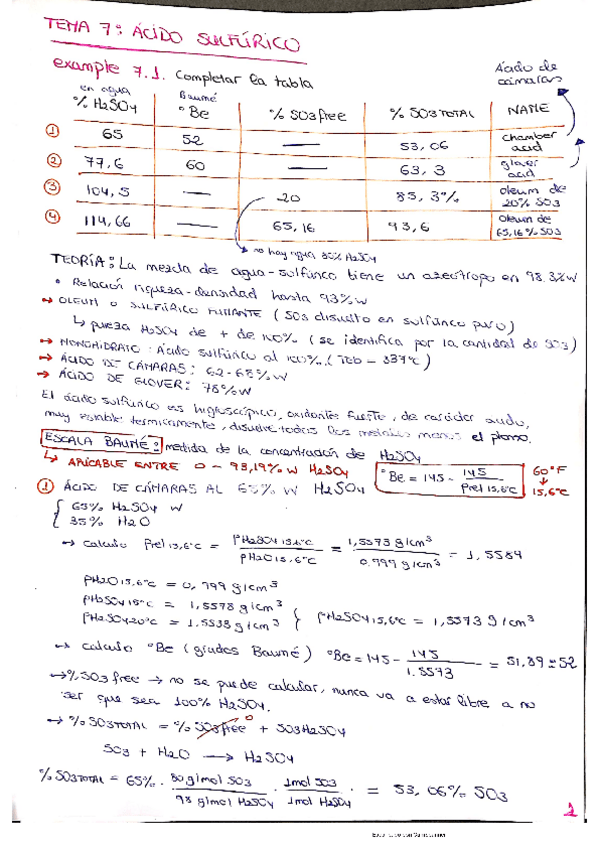 TEMA 7: ÁCIDO SULFÚRICO
example 7.1. Completar la tabla
Ácido de cámaras
en agua
% H2SO4
Baumé
°Be
% SO3 free
% SO3 TOTAL
NAME
① 65 52 — 53,06 chamber acid
② 77,6 60 — 63,3 glover acid
③ 104,5 — 20 85,3% oleum de 20% SO3
④ 114,66 — 65,16 93,6 oleum de 65,16% SO3
no hay agua 80% H2SO4
TEORÍA: La mezcla de agua-sulfúrico tiene un azeótropo en 98.3%W
• Relación riqueza-densidad hasta 93%W
→ OLEUM O SULFÚRICO FUMANTE (SO3 disuelto en sulfúrico puro)
↳ pureza H2SO4 de + de 100% (se identifica por la cantidad de SO3)
→ MONOHIDRATO: Ácido sulfúrico al 100% (Teb - 337°C)
→ ÁCIDO DE CÁMARAS: 62-68%W
→ ÁCIDO DE GLOVER: 78%W
El ácido sulfúrico es higroscópico, oxidante fuerte, de carácter ácido,
muy estable térmicamente, disuelve todos los metales menos el plomo.
ESCALA BAUMÉ: medida de la concentración de H2SO4
↳ APLICABLE ENTRE 0 - 93,19% W H2SO4
°Be = 145 - 145 / ρrel 15,6°C
60°F
↓
15,6°C
① ÁCIDO DE CÁMARAS AL 65% W H2SO4
{ 65% H2SO4 W
35% H2O
→ calculo ρrel 15,6°C = ρH2SO4 15,6°C / ρH2O 15,6°C = 1,5573 g/cm³ / 0.999 g/cm³ = 1,5589
ρH2O 15,6°C = 0,999 g/cm³
ρH2SO4 15°C = 1,5578 g/cm³
ρH2SO4 20°C = 1.5538 g/cm³ } ρH2SO4 15,6°C = 1,5573 g/cm³
→ calculo °Be (grados Baumé) °Be = 145 - 145 / 1.5573 = 51,89 ≈ 52
→ % SO3 free → no se puede calcular, nunca va a estar libre a no
ser que sea 100% H2SO4.
→ % SO3 TOTAL = % SO3 free 0 + SO3 H2SO4
SO3 + H2O → H2SO4
% SO3 TOTAL = 65% · 80 g/mol SO3 / 98 g/mol H2SO4 · 1mol SO3 / 1mol H2SO4 · = 53,06% SO3
1